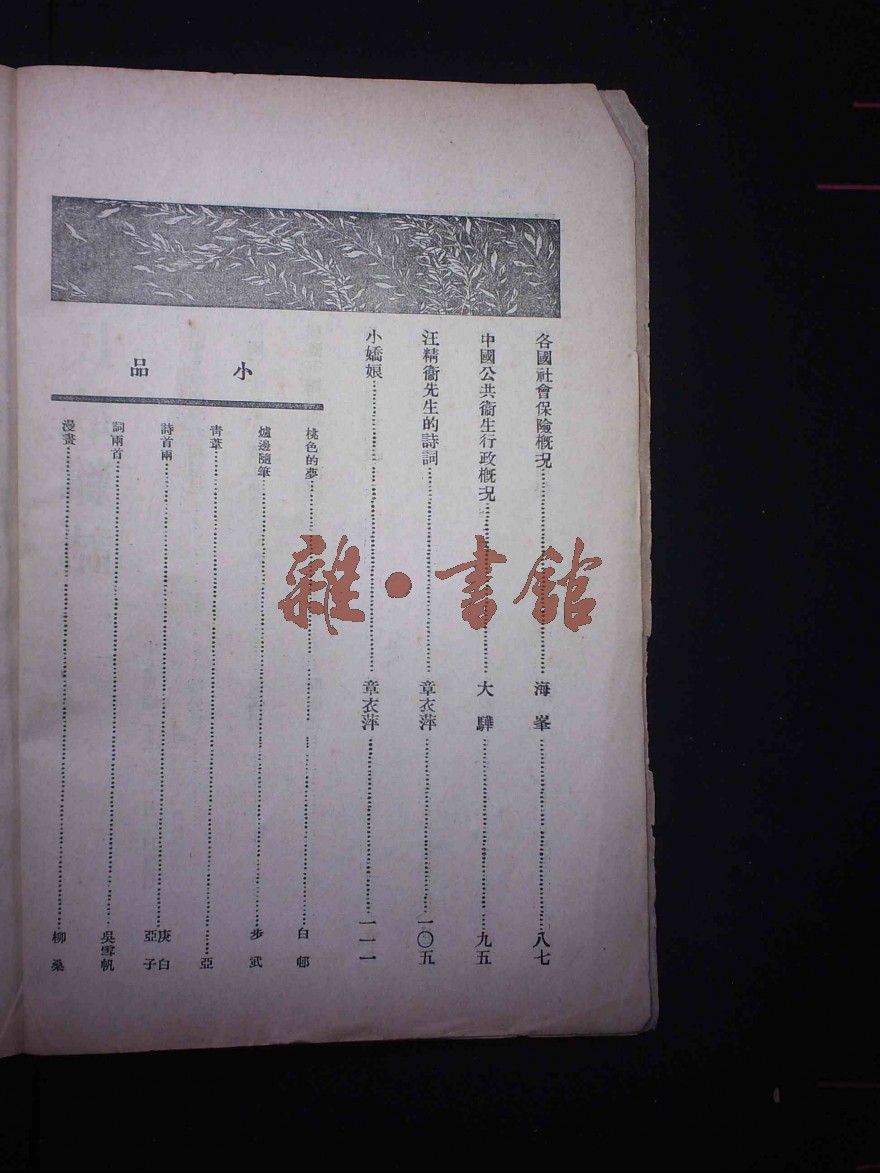 各國社會保險概况………海峯………八七
中國公共衞生行政概况………大驊………九五
汪精衞先生的詩詞………章衣萍………一〇五
小嬌娘………章衣萍………一一一
小品
桃色的夢………白邨
爐邊隨筆………步武
靑葦………亞
詩首兩………庚白 亞子
詞兩首………吳雪帆
漫畫………柳桑
雜·書館